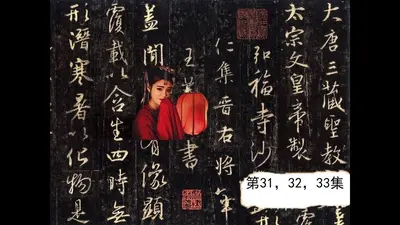 大唐三藏聖教
太宗文皇帝製
弘福寺沙
仁集晉右將軍
王
書
蓋聞
有像顯
覆載以含生四時無
形潛寒暑以化物是
第31，32，33集